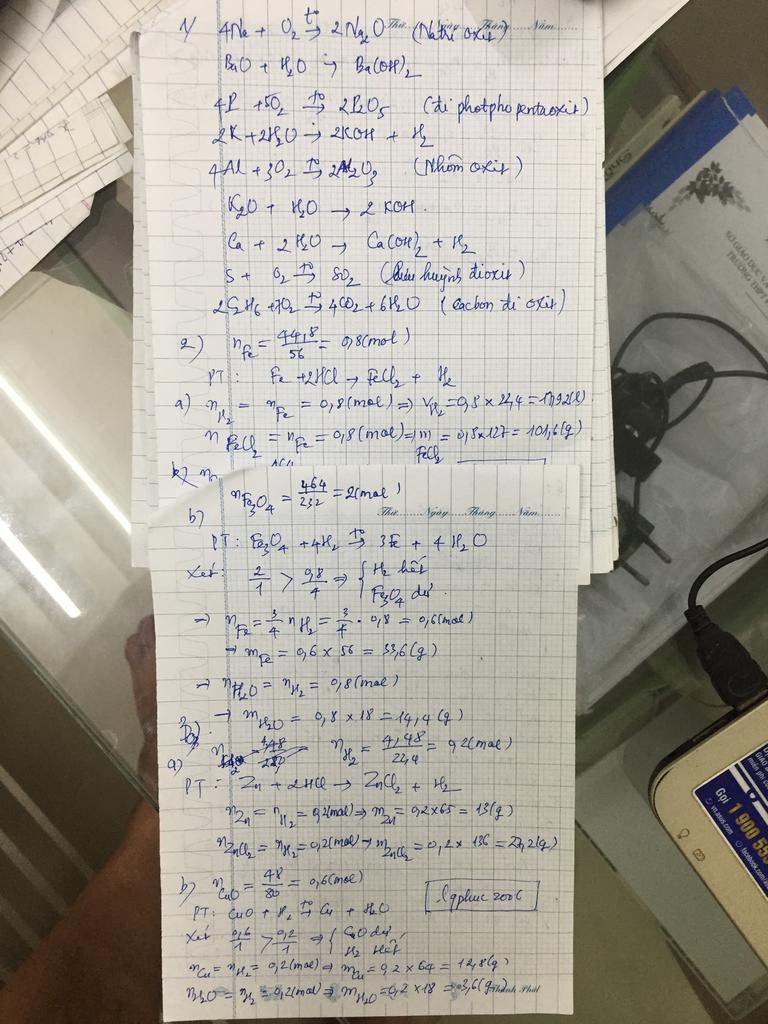 1/ 4Na + O₂ →(t°) 2Na₂O (Natri oxit)
Thứ......Ngày......Tháng......Năm......
BaO + H₂O → Ba(OH)₂
4P + 5O₂ →(t°) 2P₂O₅ (đi photpho pentaoxit)
2K + 2H₂O → 2KOH + H₂
4Al + 3O₂ →(t°) 2Al₂O₃ (Nhôm oxit)
K₂O + H₂O → 2 KOH.
Ca + 2H₂O → Ca(OH)₂ + H₂
S + O₂ →(t°) SO₂ (Lưu huỳnh đioxit)
2C₂H₆ + 7O₂ →(t°) 4CO₂ + 6H₂O (Cacbon đi oxit)
2) n_Fe = 44,8/56 = 0,8 (mol)
PT: Fe + 2HCl → FeCl₂ + H₂
a) n_H₂ = n_Fe = 0,8 (mol) ⇒ V_H₂ = 0,8 x 22,4 = 17,92 (l)
n_FeCl₂ = n_Fe = 0,8 (mol) ⇒ m_FeCl₂ = 0,8 x 127 = 101,6 (g)
n_Fe₃O₄ = 464/232 = 2 (mol)
b)
Thứ......Ngày......Tháng......Năm......
PT: Fe₃O₄ + 4H₂ →(t°) 3Fe + 4 H₂O
Xét: 2/1 > 0,8/4 ⇒ { H₂ hết
Fe₃O₄ dư.
→ n_Fe = 3/4 n_H₂ = 3/4 . 0,8 = 0,6 (mol)
→ m_Fe = 0,6 x 56 = 33,6 (g)
→ n_H₂O = n_H₂ = 0,8 (mol)
→ m_H₂O = 0,8 x 18 = 14,4 (g)
3)
a) n_H₂ = 4,48/22,4 = 0,2 (mol)
PT: Zn + 2HCl → ZnCl₂ + H₂
n_Zn = n_H₂ = 0,2 (mol) ⇒ m_Zn = 0,2 x 65 = 13 (g)
n_ZnCl₂ = n_H₂ = 0,2 (mol) → m_ZnCl₂ = 0,2 x 136 = 27,2 (g)
b) n_CuO = 48/80 = 0,6 (mol)
Lqphuc2006
PT: CuO + H₂ →(t°) Cu + H₂O
Xét 0,6/1 > 0,2/1 ⇒ { CuO dư
H₂ hết
n_Cu = n_H₂ = 0,2 (mol) ⇒ m_Cu = 0,2 x 64 = 12,8 (g)
n_H₂O = n_H₂ = 0,2 (mol) ⇒ m_H₂O = 0,2 x 18 = 3,6 (g)
Thành Phát
SỞ GIÁO DỤC VÀ
TRƯỜNG THPT
Gọi 1 900 555
vn.asus.com